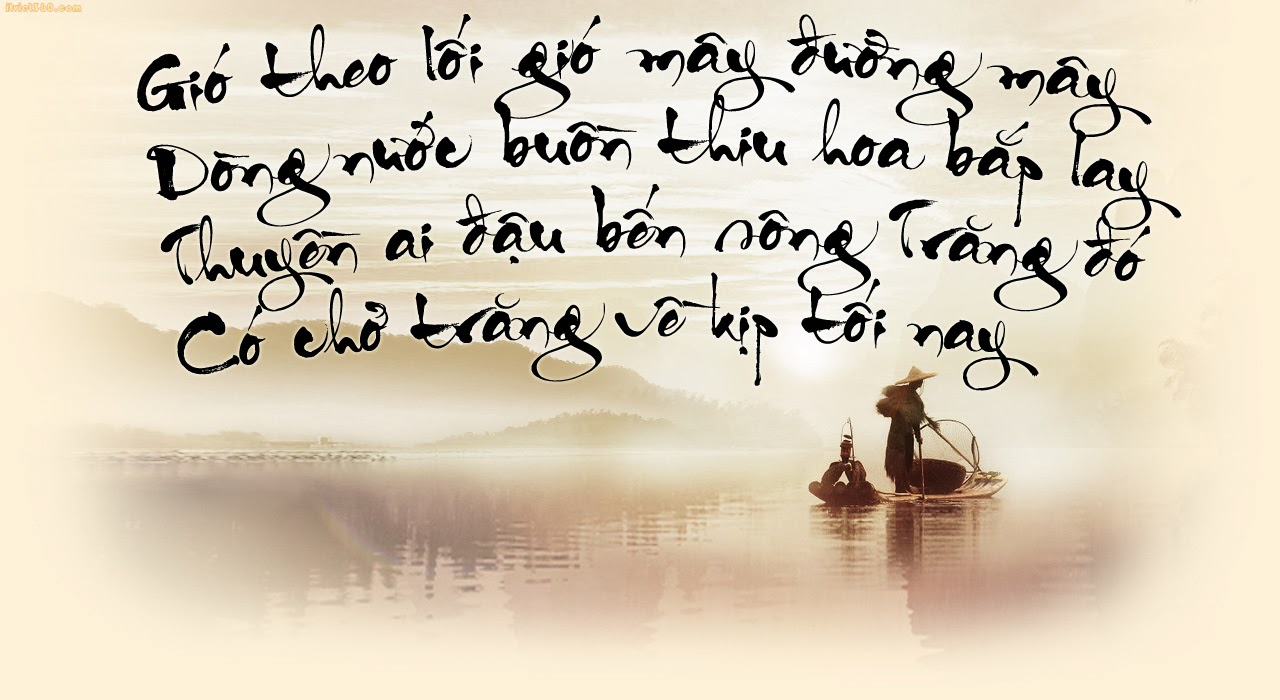 itviet360.com
Gió theo lối gió mây đường mây
Dòng nước buồn thiu hoa bắp lay
Thuyền ai đậu bến sông Trăng đó
Có chở trăng về kịp tối nay